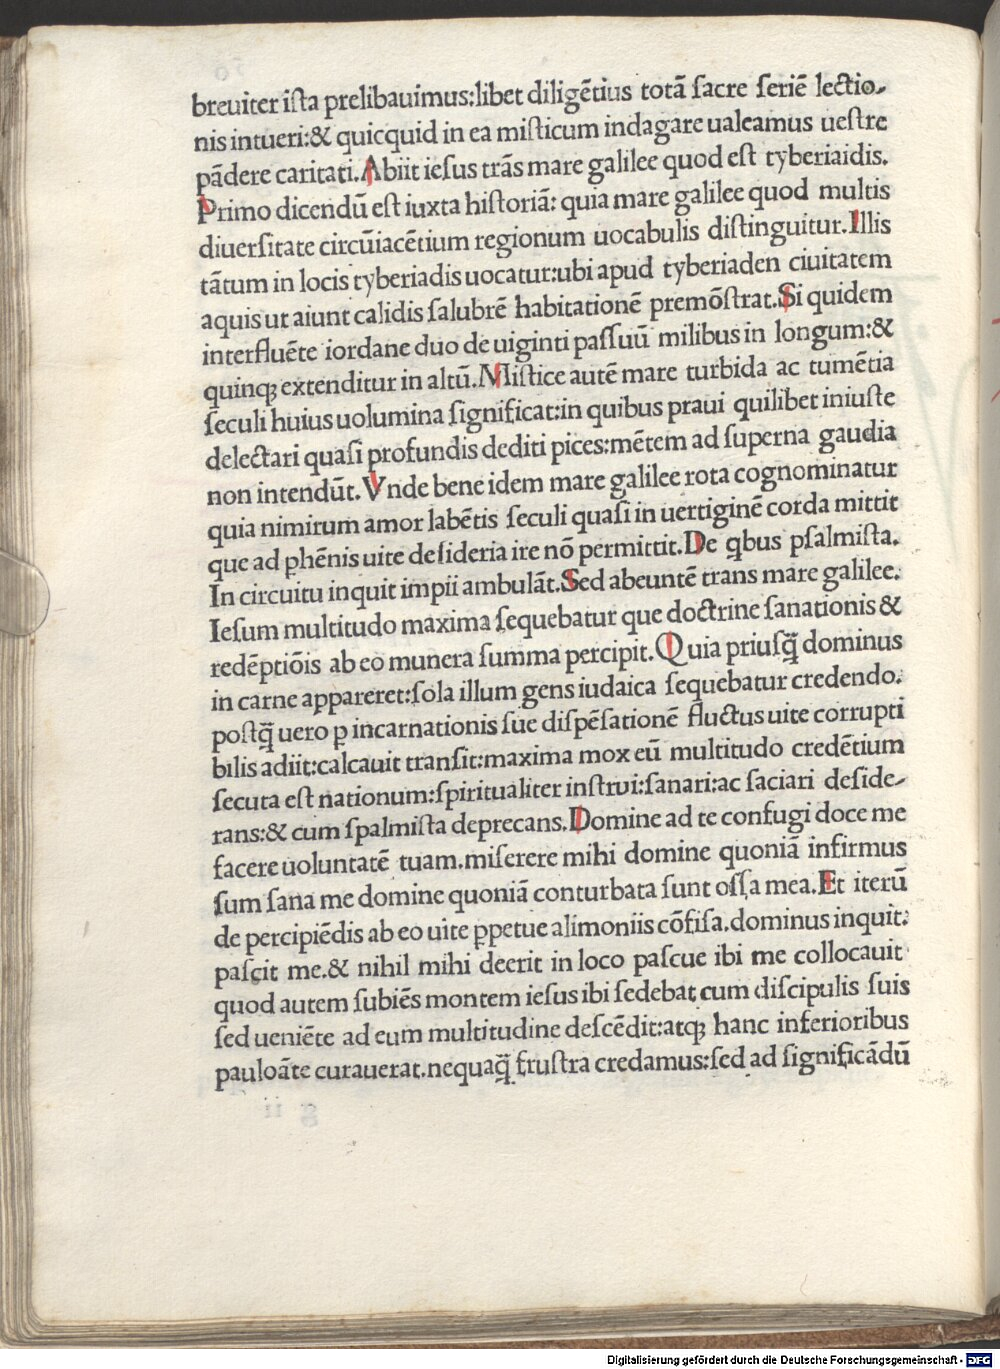 breuiter iſta prelibauimus:libet diligētius totā ſacre ſeriē lectio-
nis intueri:& quicquid in ea miſticum indagare ualeamus ueſtre
pādere caritati. Abiit ieſus trās mare galilee quod eſt tyberiaidis.
Primo dicendū eſt iuxta hiſtoriā: quia mare galilee quod multis
diuerſitate circūiacētium regionum uocabulis diſtinguitur. Illis
tātum in locis tyberiadis uocatur:ubi apud tyberiaden ciuitatem
aquis ut aiunt calidis ſalubrē habitationē premōſtrat. Si quidem
interfluēte iordane duo de uiginti paſſuū milibus in longum:&
quinqꝫ extenditur in altū. Miſtice autē mare turbida ac tumētia
ſeculi huius uolumina ſignificat:in quibus praui quilibet iniuſte
delectari quaſi profundis dediti pices:mētem ad ſuperna gaudia
non intendūt. Vnde bene idem mare galilee rota cognominatur
quia nimirum amor labētis ſeculi quaſi in uertiginē corda mittit
que ad ꝑhēnis uite deſideria ire nō permittit. De qbus pſalmiſta.
In circuitu inquit impii ambulāt. Sed abeuntē trans mare galilee.
Ieſum multitudo maxima ſequebatur que doctrine ſanationis &
redēptiōis ab eo munera ſumma percipit. Quia priuſq̄ dominus
in carne appareret:ſola illum gens iudaica ſequebatur credendo.
poſtq̄ uero ꝑ incarnationis ſue diſpēſationē fluctus uite corrupti
bilis adiit:calcauit tranſit:maxima mox eū multitudo credētium
ſecuta eſt nationum:ſpiritualiter inſtrui:ſanari:ac ſaciari deſide-
rans:& cum ſpalmiſta deprecans. Domine ad te confugi doce me
facere uoluntatē tuam.miſerere mihi domine quoniā infirmus
ſum ſana me domine quoniā conturbata ſunt oſſa mea. Et iterū
de percipiēdis ab eo uite ꝑpetue alimoniis cōfiſa.dominus inquit:
paſcit me.& nihil mihi deerit in loco paſcue ibi me collocauit
quod autem ſubiēs montem ieſus ibi ſedebat cum diſcipulis ſuis
ſed ueniēte ad eum multitudine deſcēdit:atqꝫ hanc inferioribus
pauloāte curauerat.nequaq̄ fruſtra credamus:ſed ad ſignificādū
Digitalisierung gefördert durch die Deutsche Forschungsgemeinschaft - DFG